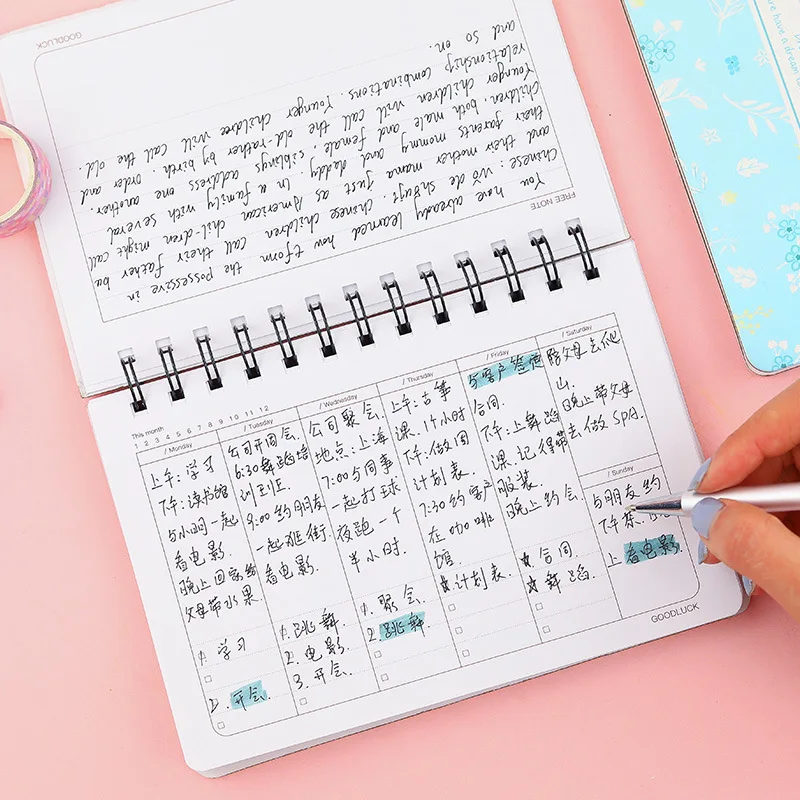 GOODLUCK
FREE NOTE
You have already learned how tform the possessive in
Chinese: Wǒ de shūbāo. Just as American children call their father
and their mother mama and daddy, Chinese chil-dren might call
their parents mommy and
In a family with several
children, both male and female, siblings address one another.
Younger children will call the old rather by birth order and
relationship combinations. Younger childree will call the old.
and so on.
This month
1 2 3 4 5 6 7 8 9 10 11 12
/ Monday
上午:学习
下午:读书馆
与小明一起
看电影.
晚上回家给
父母带水果
1. 学习
2. 开会.
/ Tuesday
公司开周会.
6:30舞蹈培
训
8:00约朋友
一起逛街
看电影.
1. 跳舞.
2. 电影.
3. 开会.
/ Wednesday
公司聚会.
地点:上海
7:00与同事
一起打球
夜跑一个
半小时.
1. 聚会.
2. 跳舞
/ Thursday
上午:古筝
课.1个小时
下午:做周
计划表.
7:30约客户
在咖啡
馆.
☆计划表.
/ Friday
与客户签
合同.
下午:上舞蹈
课.记得带
服装.
晚上约会.
☆合同.
☆舞蹈.
/ Saturday
陪父母去爬
山.
晚上带父母
去做SPA.
/ Sunday
与朋友约
下午茶.
上看电影.
GOODLUCK